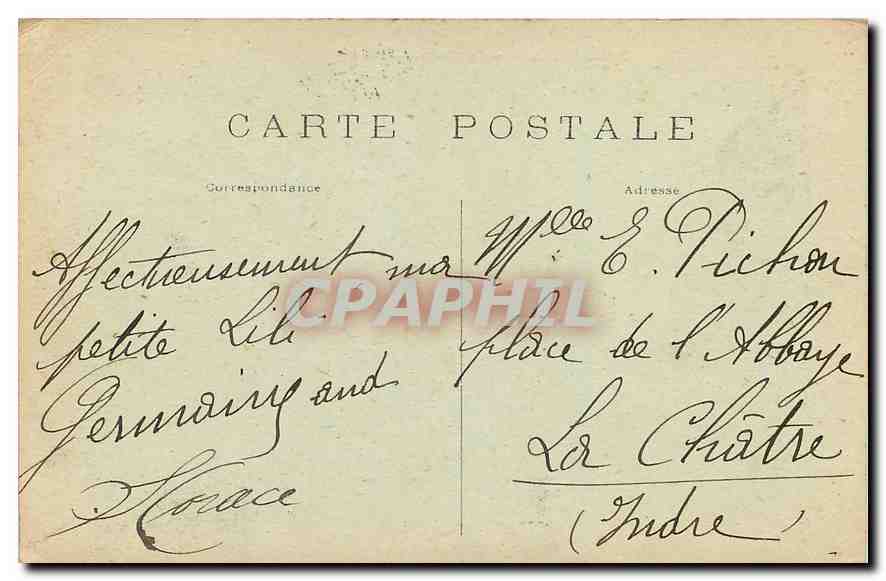 CARTE POSTALE
Correspondance
Adresse
Affectueusement ma
petite Lili
Germaine and
Horace
Mlle E. Pichon
place de l'Abbaye
La Châtre
(Indre)
CPAPHIL